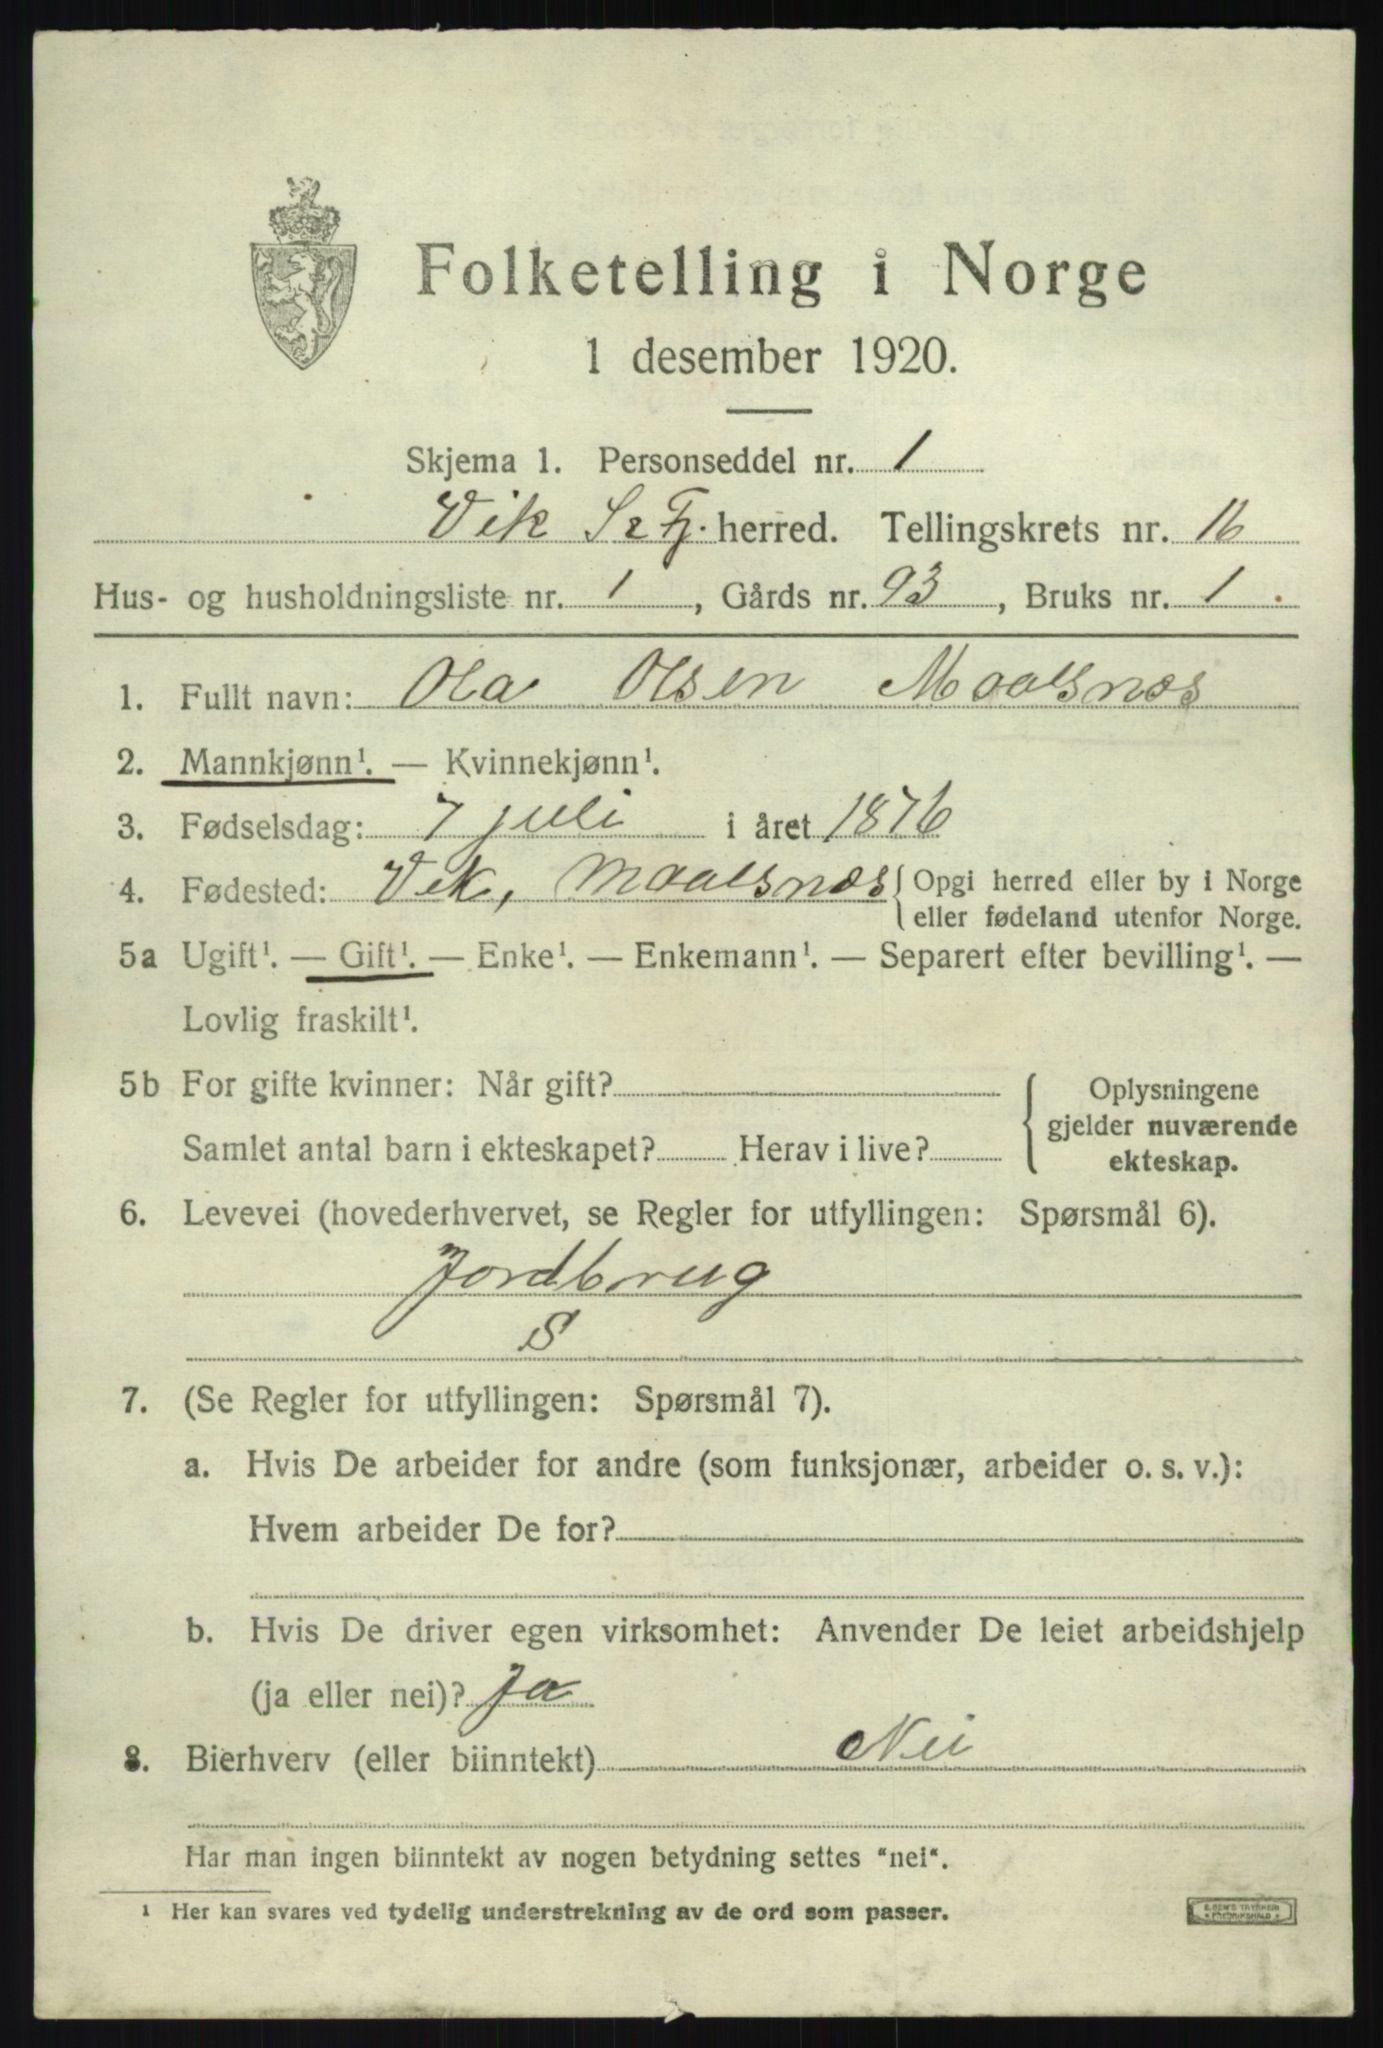 Folketelling i Norge
1 desember 1920.
Skjema 1. Personseddel nr. 1
Vik S & Fj. herred. Tellingskrets nr. 16
Hus- og husholdningsliste nr. 1, Gårds nr. 93, Bruks nr. 1.
1. Fullt navn: Ola Olsen Maalsnæs
2. Mannkjønn¹. — Kvinnekjønn¹.
3. Fødselsdag: 7 juli i året 1876
4. Fødested: Vik, Maalsnæs { Opgi herred eller by i Norge
eller fødeland utenfor Norge.
5a Ugift¹. — Gift¹. — Enke¹. — Enkemann¹. — Separert efter bevilling¹. —
Lovlig fraskilt¹.
5b For gifte kvinner: Når gift?
Samlet antal barn i ekteskapet? Herav i live?
Oplysningene
gjelder nuværende
ekteskap.
6. Levevei (hovederhvervet, se Regler for utfyllingen: Spørsmål 6).
Jordbrug
S
7. (Se Regler for utfyllingen: Spørsmål 7).
a. Hvis De arbeider for andre (som funksjonær, arbeider o. s. v.):
Hvem arbeider De for?
b. Hvis De driver egen virksomhet: Anvender De leiet arbeidshjelp
(ja eller nei)? Ja
8. Bierhverv (eller biinntekt) Nei
Har man ingen biinntekt av nogen betydning settes "nei".
¹ Her kan svares ved tydelig understrekning av de ord som passer.
TRYKKERI
FREDRIKSHALD